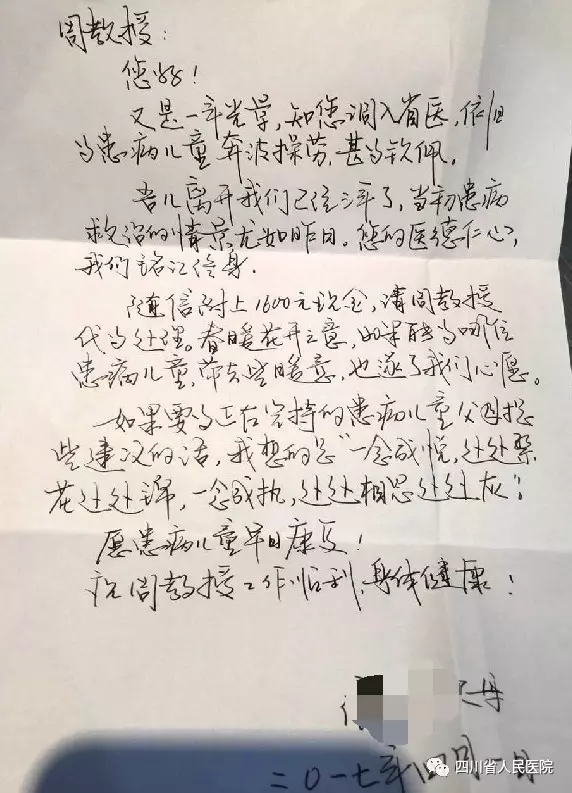 周教授：
您好！
又是一年光景，知您调入省医，依旧
为患病儿童奔波操劳，甚为钦佩。
吾儿离开我们已经三年了，当初患病
救治的情景尤如昨日。您的医德仁心，
我们铭记终身．
随信附上1600元现金，请周教授
代为处理。春暖花开之意，如果能为哪位
患病儿童，带去些暖意，也遂了我们心愿。
如果要与正在坚持的患病儿童父母提
些建议的话，我想的是“一念成悦，处处繁
花处处锦，一念成执，处处相思处处灰”！
愿患病儿童早日康复！
祝周教授工作顺利，身体健康！
二0一七年四月一日
四川省人民医院